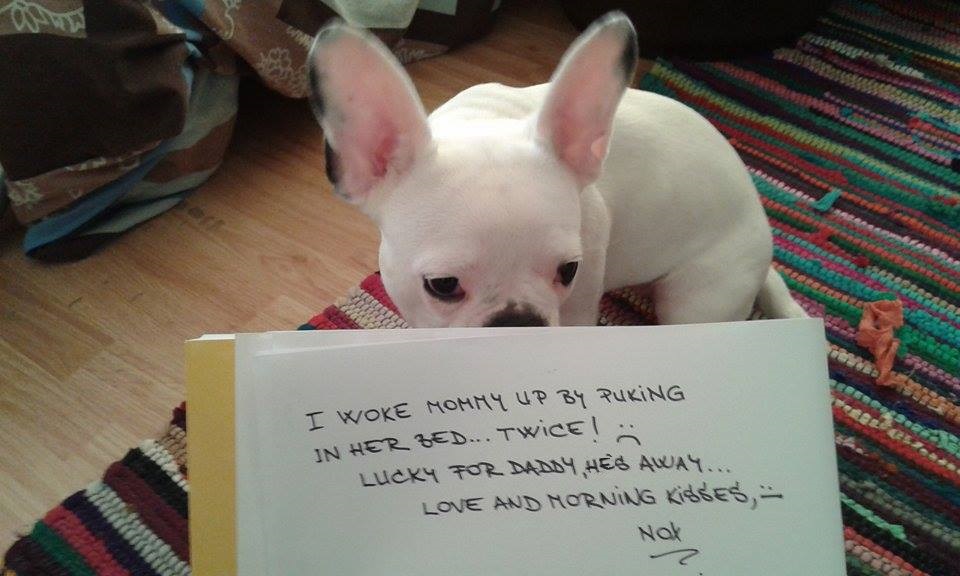 I WOKE MOMMY UP BY PUKING
IN HER BED... TWICE! :(
LUCKY FOR DADDY, HE'S AWAY...
LOVE AND MORNING KISSES, :)
NOX